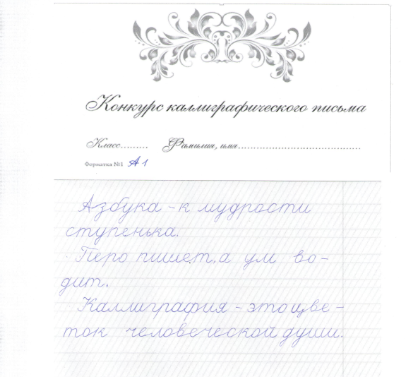 Конкурс каллиграфического письма
Класс......... Фамилия, имя.......................................
Форматка №1 А1
Азбука - к мудрости
ступенька.
Перо пишет, а ум во-
дит.
Каллиграфия - это цве-
ток человеческой души.